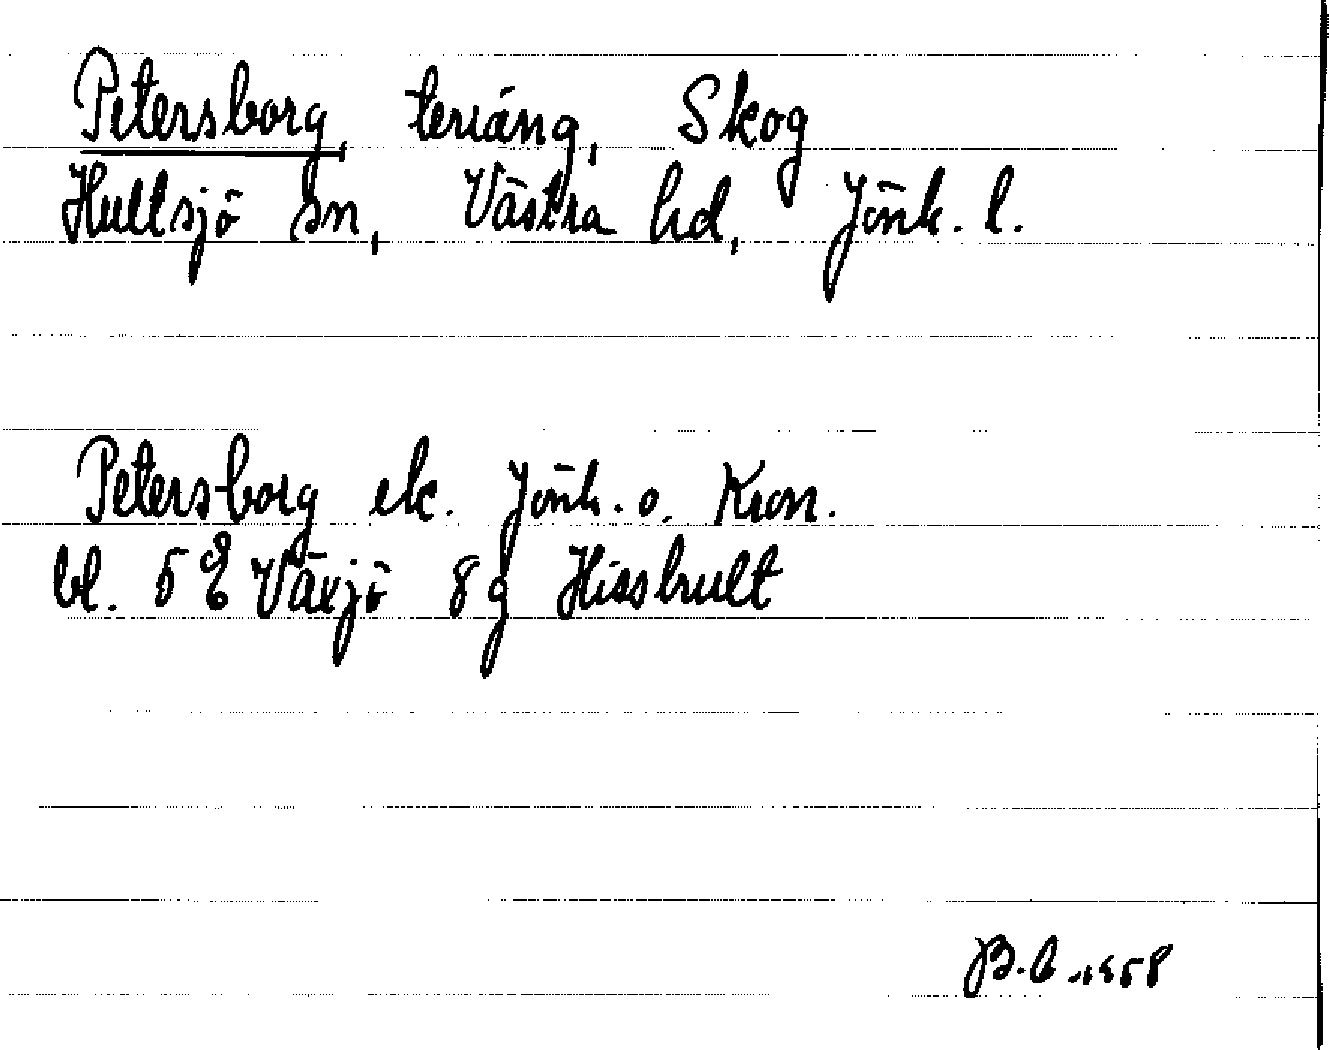 Petersborg, terräng, Skog
Hultsjö sn, Västra hd, Jönk. l.
Petersborg ek. Jönk. o. Kron.
bl. 5 E Växjö 8 g Hisshult
1958